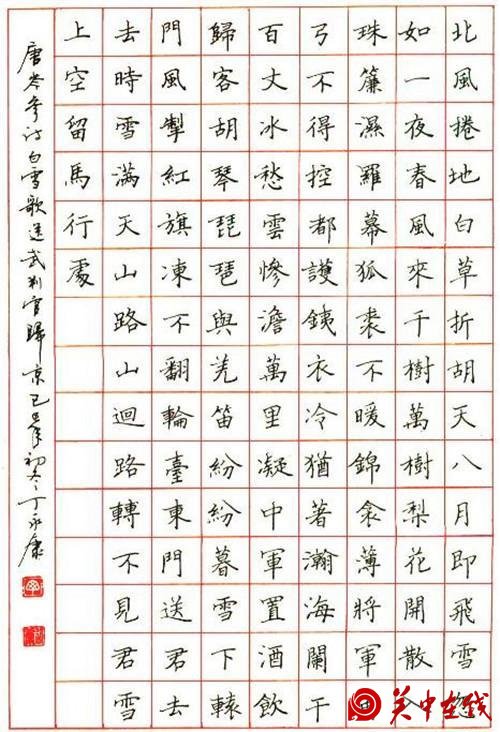 北風捲地白草折胡天八月即飛雪忽
如一夜春風來千樹萬樹梨花開散入
珠簾濕羅幕狐裘不暖錦衾薄將軍
弓不得控都護銕衣冷猶著瀚海闌干
百丈冰愁雲慘澹萬里凝中軍置酒飲
歸客胡琴琵琶與羌笛紛紛暮雪下轅
門風掣紅旗凍不翻輪臺東門送君去
去時雪滿天山路山迴路轉不見君雪
上空留馬行處
唐岑參詩白雪歌送武判官歸京己丑年初冬丁永康
关中在线